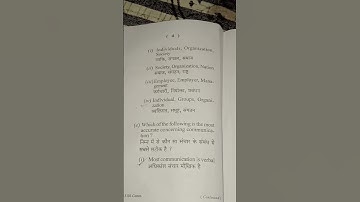 ( 4 )
(i) Individuals, Organization,
Society
व्यक्ति, संगठन, समाज
(ii) Society, Organization, Nation
समाज, संगठन, राष्ट्र
(iii) Employee, Employer, Mana-
gement
कर्मचारी, नियोक्ता, प्रबंधन
(iv) Individual, Groups, Organi-
zation
व्यक्तिगत, समूह, संगठन
(e) Which of the following is the most
accurate concerning communica-
tion ?
निम्न में से कौन सा संचार के संबंध में
सबसे सटीक है ?
(i) Most communication is verbal
अधिकांश संचार मौखिक है